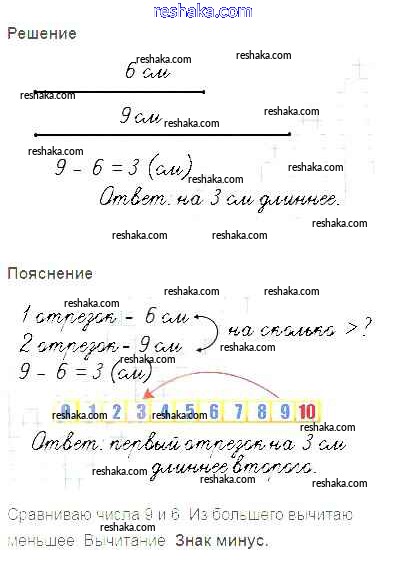 reshaka.com
Решение
reshaka.com
6 см
reshaka.com
reshaka.com
9 см
reshaka.com
reshaka.com
reshaka.com
9 - 6 = 3 (см)
reshaka.com
Ответ: на 3 см длиннее.
reshaka.com reshaka.com
reshaka.com
Пояснение
reshaka.com reshaka.com
reshaka.com
1 отрезок - 6 см
на сколько > ?
2 отрезок - 9 см
reshaka.com
reshaka.com
9 - 6 = 3 (см)
0 1 2 3 4 5 6 7 8 9 10
reshaka.com reshaka.com
reshaka.com
Ответ: первый отрезок на 3 см
длиннее второго.
reshaka.com
reshaka.com
reshaka.com
Сравниваю числа 9 и 6. Из большего вычитаю
reshaka.com
меньшее. Вычитание. Знак минус.
reshaka.com